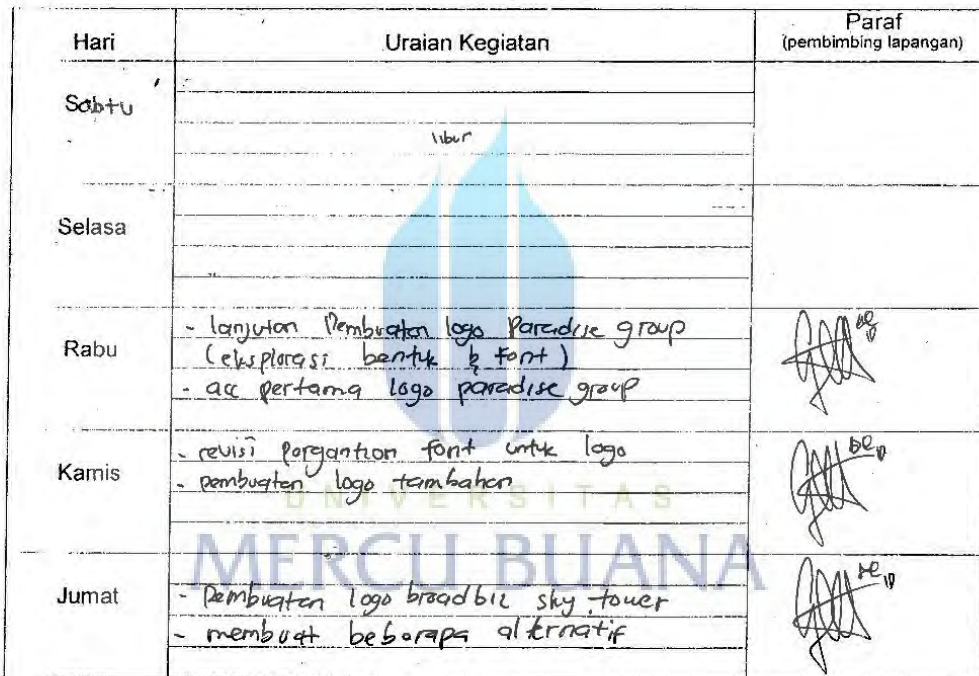 Hari Uraian Kegiatan Paraf
(pembimbing lapangan)
Sabtu
libur
Selasa
Rabu
- lanjutan Pembuatan logo Paradise group
(eksplorasi bentuk & font)
- acc pertama logo paradise group
Kamis
- revisi pergantian font untuk logo
- pembuatan logo tambahan
UNIVERSITAS
MERCU BUANA
Jumat
- Pembuatan logo broadbiz sky tower
- membuat beberapa alternatif